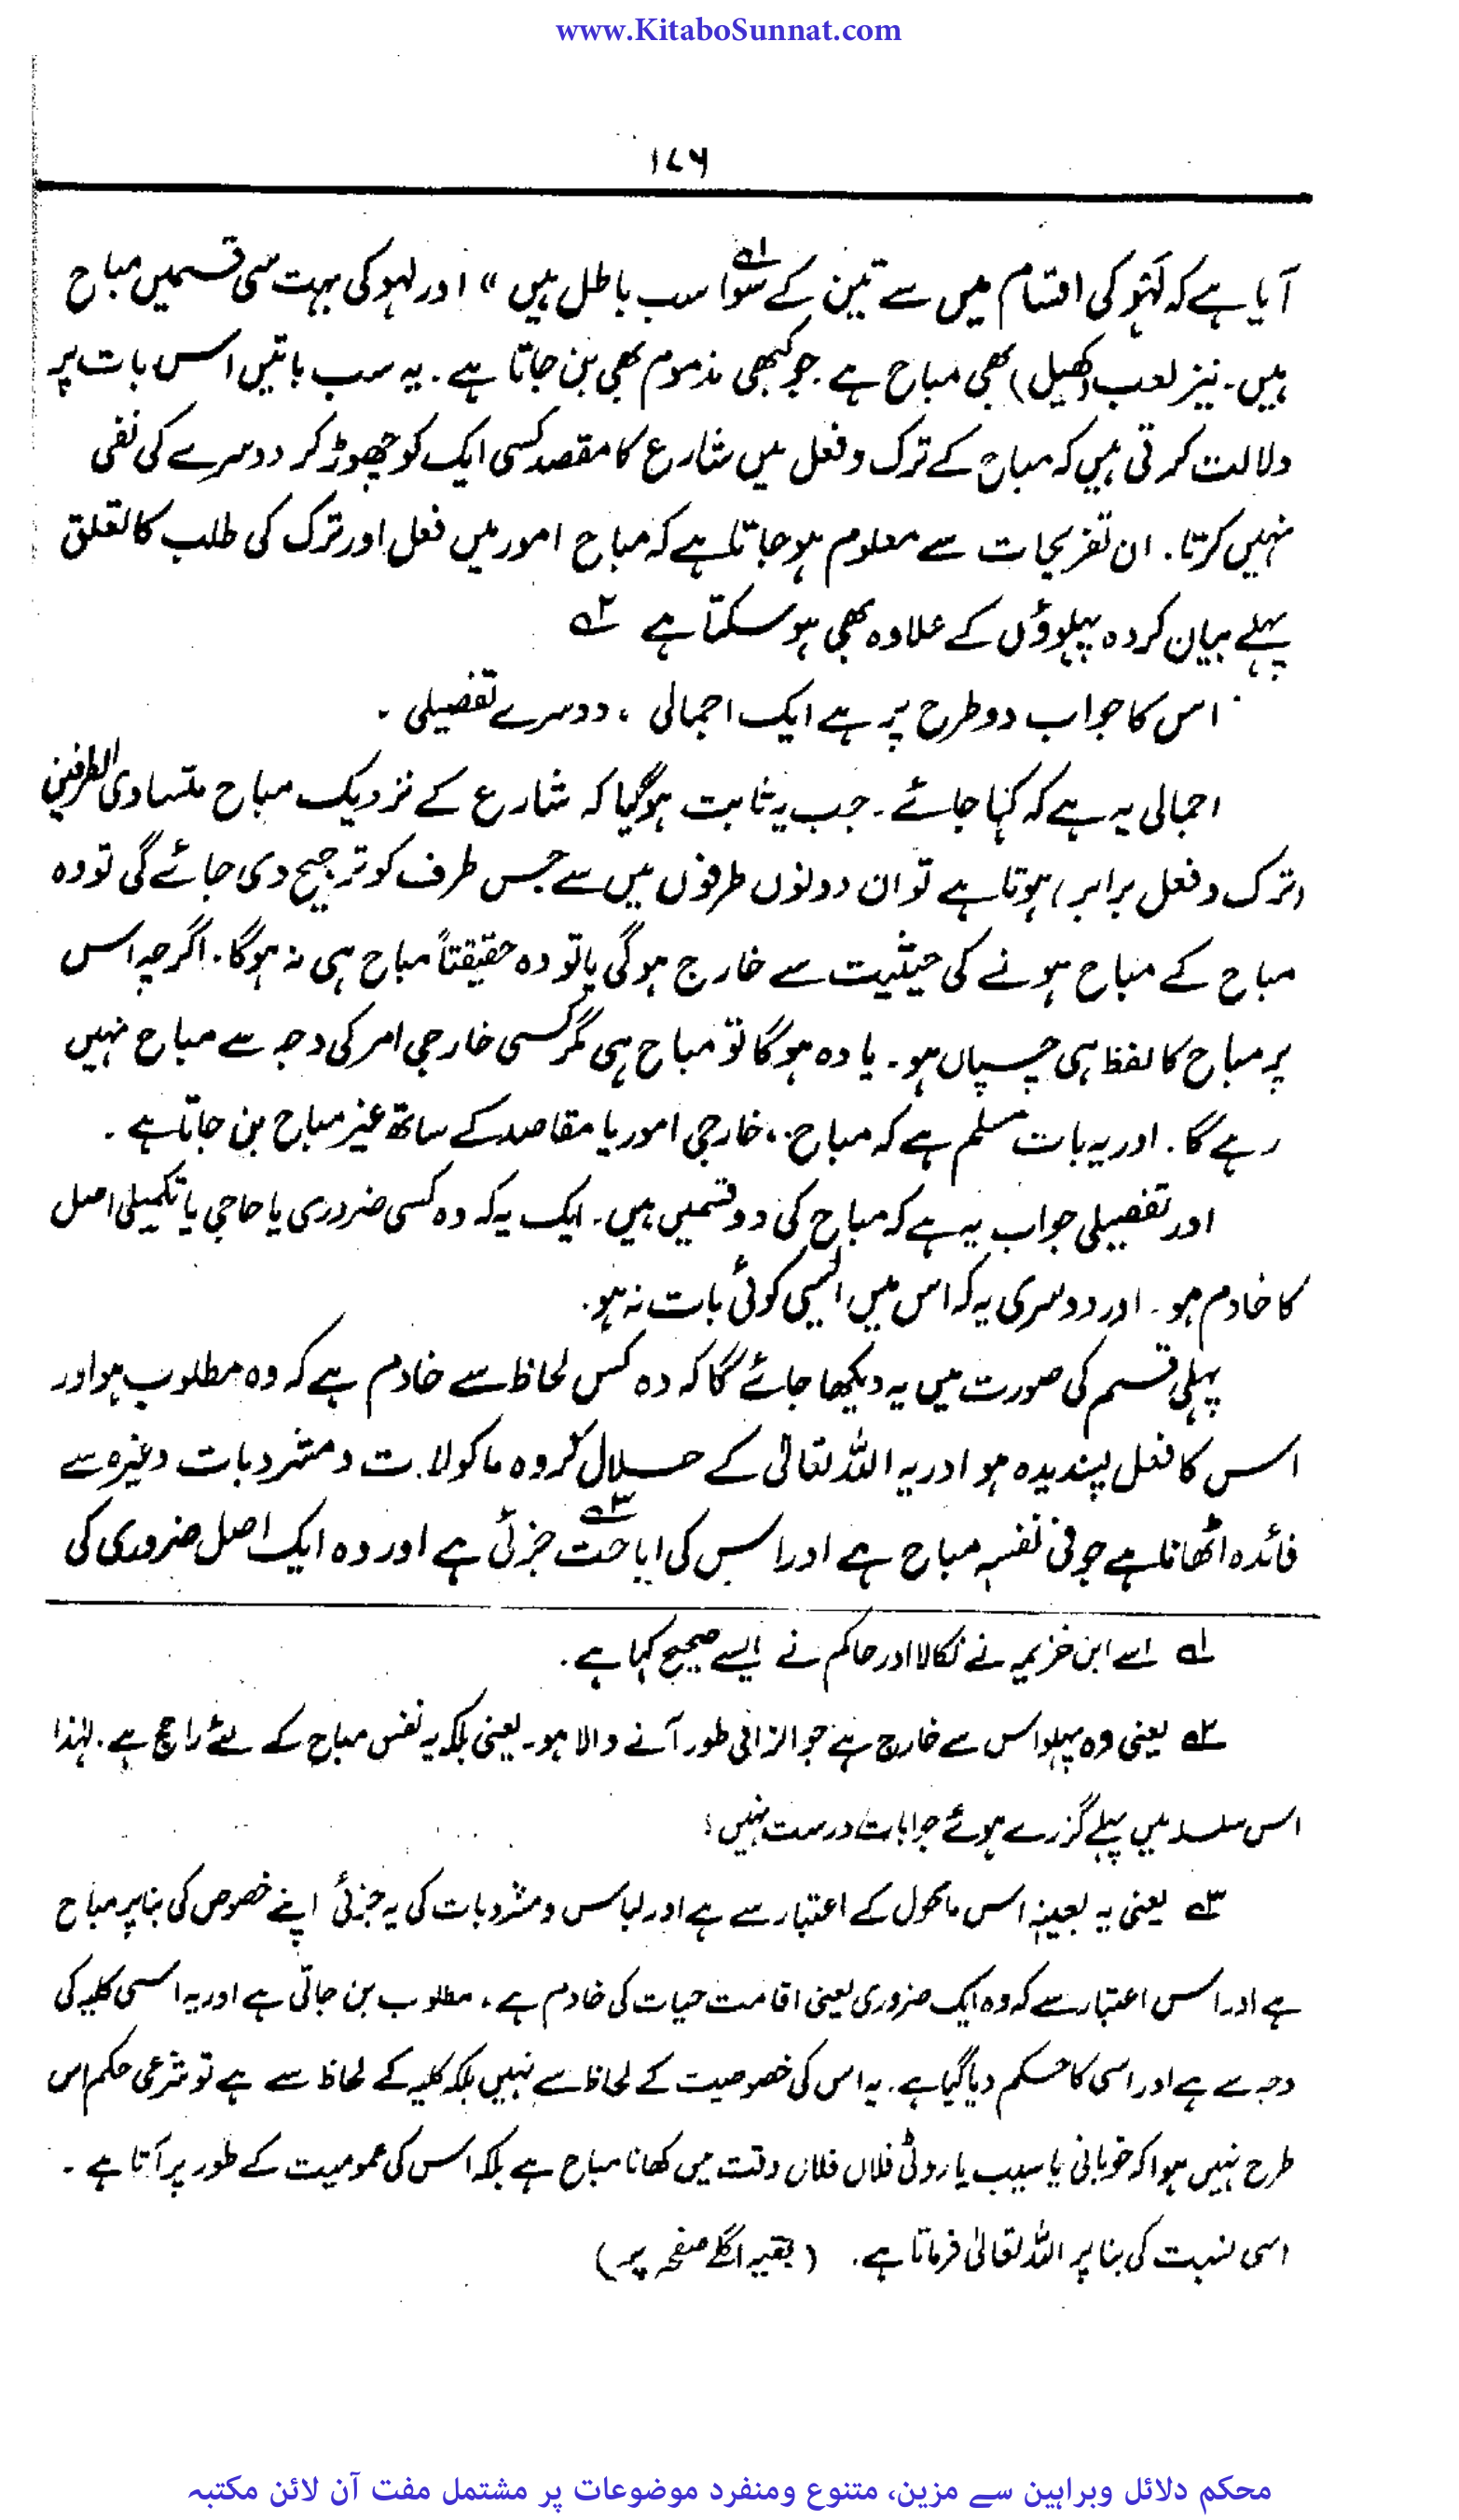 www.KitaboSunnat.com
۱۷۶
آیا ہے کہ لَہْو کی اقسام میں سے تین کے سوا۱ سب باطل ہیں» اور لہو کی بہت سی قسمیں مباح
ہیں۔ نیز لعب (کھیل) بھی مباح ہے۔ جو کبھی مذموم بھی بن جاتا ہے۔ یہ سب باتیں اس بات پر
دلالت کرتی ہیں کہ مباح کے ترک و فعل میں شارع کا مقصد کسی ایک کو چھوڑ کر دوسرے کی نفی
نہیں کرتا۔ ان تفریحات سے معلوم ہو جاتا ہے کہ مباح امور میں فعل اور ترک کی طلب کا تعلق
پہلے بیان کردہ پہلوؤں کے علاوہ بھی ہو سکتا ہے ۲
اس کا جواب دو طرح پر ہے ایک اجمالی، دوسرے تفصیلی۔
اجمالی یہ ہے کہ کہا جائے۔ جب یہ ثابت ہو گیا کہ شارع کے نزدیک مباح متساوی الطرفین
(ترک و فعل برابر) ہوتا ہے تو ان دونوں طرفوں میں سے جس طرف کو ترجیح دی جائے گی تو وہ
مباح کے مباح ہونے کی حیثیت سے خارج ہو گی یا تو وہ حقیقتاً مباح ہی نہ ہو گا۔ اگرچہ اس
پر مباح کا لفظ ہی چسپاں ہو۔ یا وہ ہو گا تو مباح ہی مگر کسی خارجی امر کی وجہ سے مباح نہیں
رہے گا۔ اور یہ بات مسلم ہے کہ مباح، خارجی امور یا مقاصد کے ساتھ غیر مباح بن جاتا ہے۔
اور تفصیلی جواب یہ ہے کہ مباح کی دو قسمیں ہیں۔ ایک یہ کہ وہ کسی ضروری یا حاجی یا تکمیلی اصل
کا خادم ہو۔ اور دوسری یہ کہ اس میں ایسی کوئی بات نہ ہو۔
پہلی قسم کی صورت میں یہ دیکھا جائے گا کہ وہ کس لحاظ سے خادم ہے کہ وہ مطلوب ہو اور
اس کا فعل پسندیدہ ہو اور یہ اللہ تعالیٰ کے حلال کردہ ماکولات و مشروبات وغیرہ سے
فائدہ اٹھانا ہے جو فی نفسہٖ مباح ہے اور اس کی اباحت۳ جزئی ہے اور وہ ایک اصل ضروری کی
۱ اسے ابن خزیمہ نے نکالا اور حاکم نے اسے صحیح کہا ہے۔
۲ یعنی وہ پہلو اس سے خارج ہے جو الزامی طور آنے والا ہو۔ یعنی بلکہ یہ نفس مباح کے لئے راجح ہے۔ لہٰذا
اس سلسلہ میں پہلے گزرے ہوئے جوابات درست نہیں؛
۳ یعنی یہ بعینہٖ اس ماکول کے اعتبار سے ہے اور لباس و مشروبات کی یہ جزئی اپنے خصوص کی بنا پر مباح
ہے اور اس اعتبار سے کہ وہ ایک ضروری یعنی اقامت حیات کی خادم ہے، مطلوب بن جاتی ہے اور یہ اسی کلیہ کی
وجہ سے ہے اور اسی کا حکم دیا گیا ہے۔ یہ اس کی خصوصیت کے لحاظ سے نہیں بلکہ کلیہ کے لحاظ سے ہے تو شرعی حکم اس
طرح نہیں ہوا کہ خوبانی یا سیب یا روٹی فلاں فلاں وقت میں کھانا مباح ہے بلکہ اس کی عمومیت کے طور پر آتا ہے۔
اسی نسبت کی بنا پر اللہ تعالیٰ فرماتا ہے۔ (بقیہ اگلے صفحہ پر)
محکم دلائل وبراہین سے مزین، متنوع ومنفرد موضوعات پر مشتمل مفت آن لائن مکتبہ